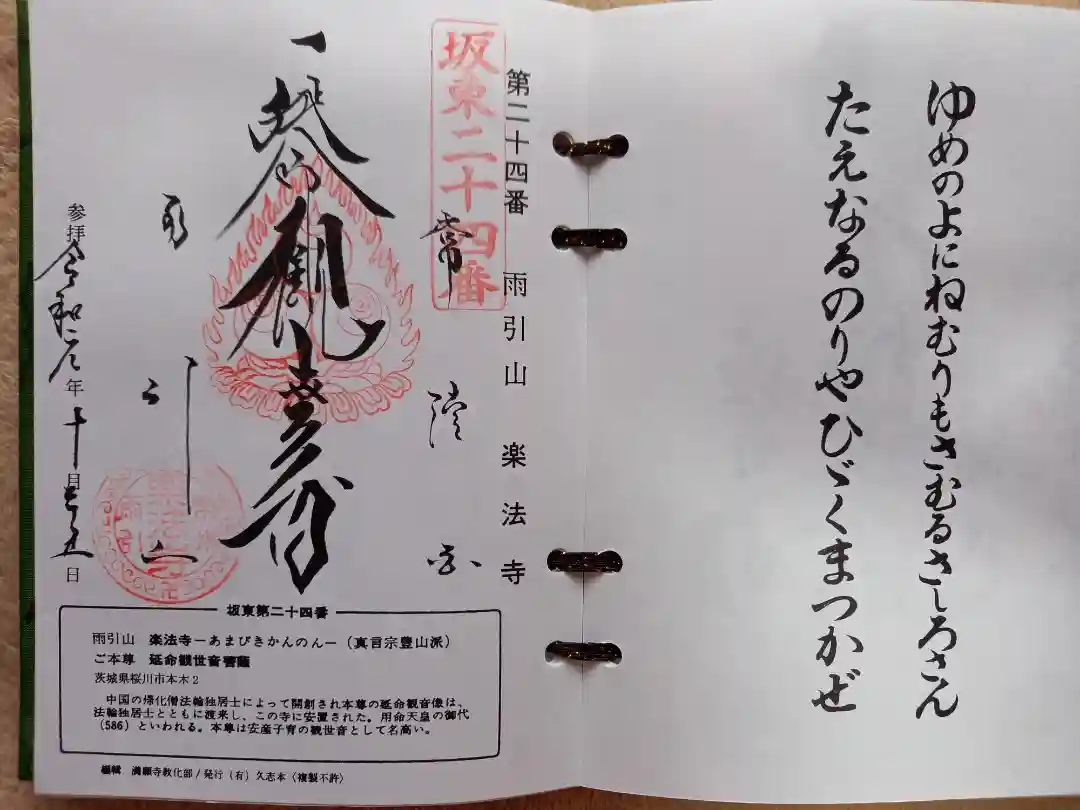 ゆめのよにねむりもさむるさしろさん
たえなるのりやひゞくまつかぜ
第二十四番 雨引山 楽法寺
坂東二十四番
常陸国
雨引山
参拝令和元年十月廿五日
坂東第二十四番
雨引山 楽法寺ーあまびきかんのんー(真言宗豊山派)
ご本尊 延命観世音菩薩
茨城県桜川市本木2
中国の帰化僧法輪独居士によって開創され本尊の延命観音像は、
法輪独居士とともに渡来し、この寺に安置された。用命天皇の御代
(586)といわれる。本尊は安産子育の観世音として名高い。
編輯 満願寺教化部/発行(有)久志本〈複製不許〉